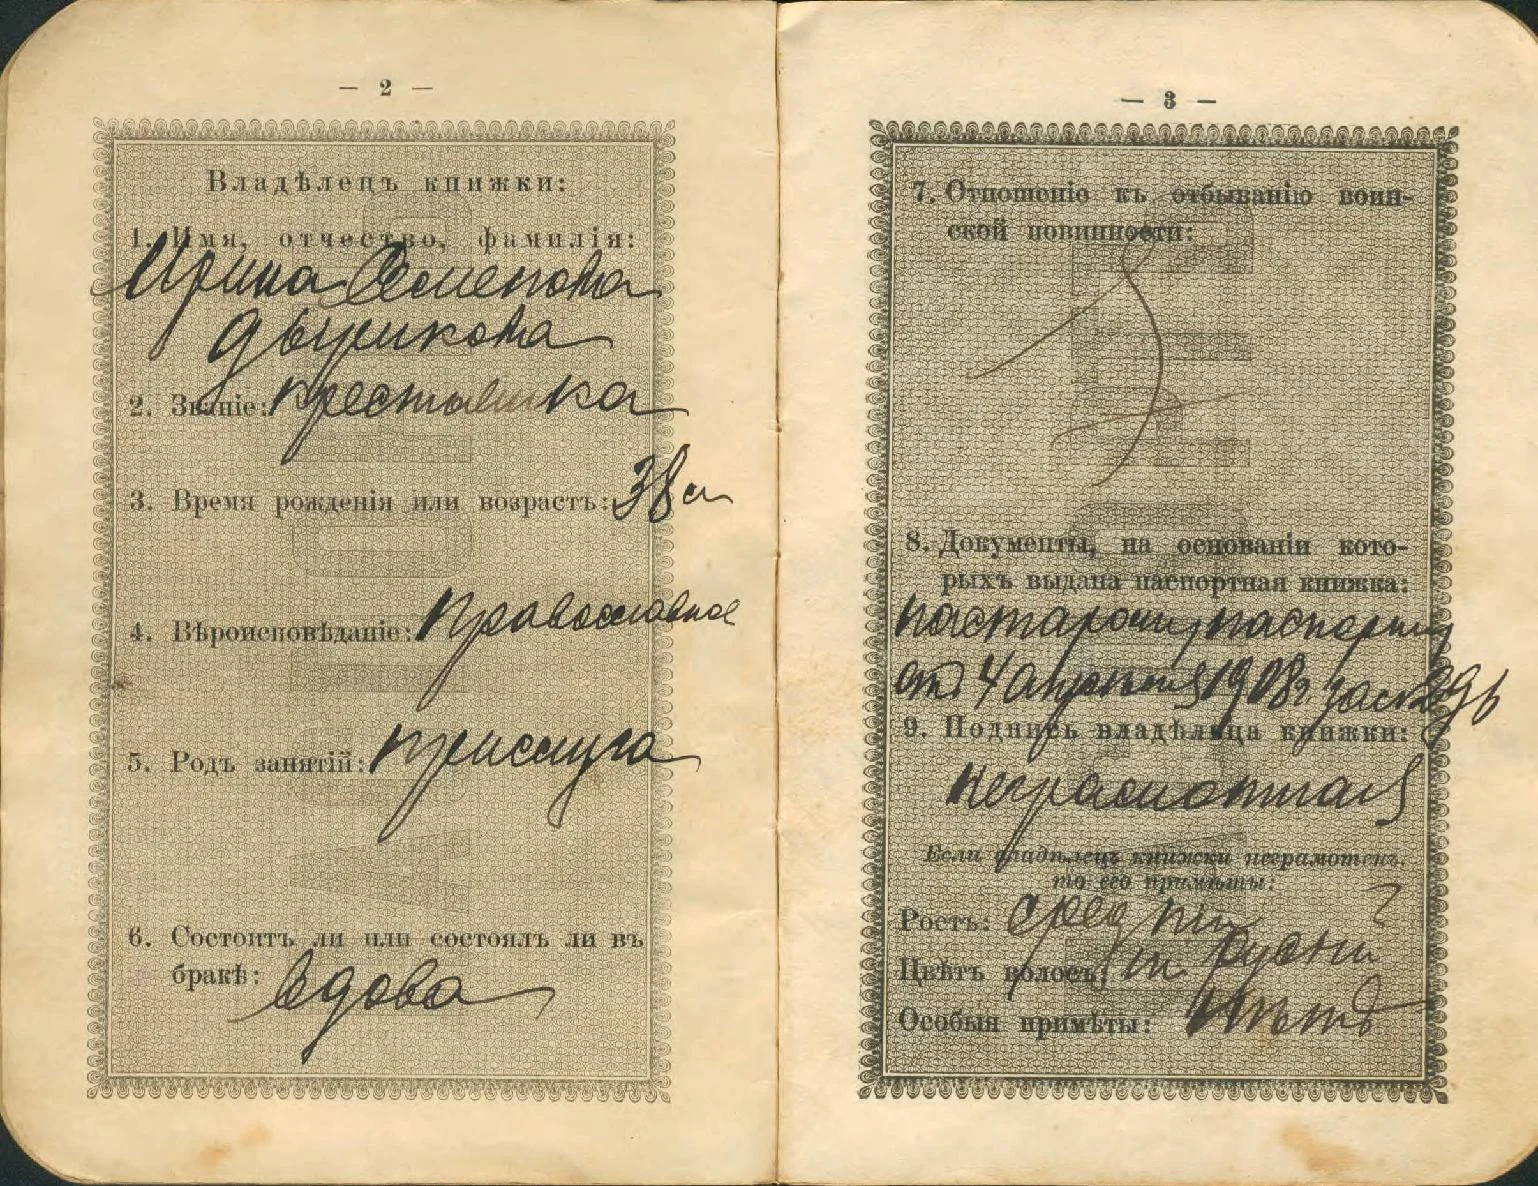 — 2 —
Владѣлецъ книжки:
1. Имя, отчество, фамилія:
Ирина Семенова
2. Званіе: крестьянка
3. Время рожденія или возрастъ: 38 л
4. Вѣроисповѣданіе: православное
5. Родъ занятій: прислуга
6. Состоитъ ли или состоялъ ли въ
бракѣ: вдова
— 3 —
7. Отношеніе къ отбыванію воин-
ской повинности:
8. Документы, на основаніи кото-
рыхъ выдана паспортная книжка:
от 4 апрѣля 1908 г за №
9. Подпись владѣльца книжки:
неграмотная
Если владѣлецъ книжки неграмотенъ,
то его примѣты:
Ростъ: средній
Цвѣтъ волосъ: русый
Особыя примѣты: нѣтъ